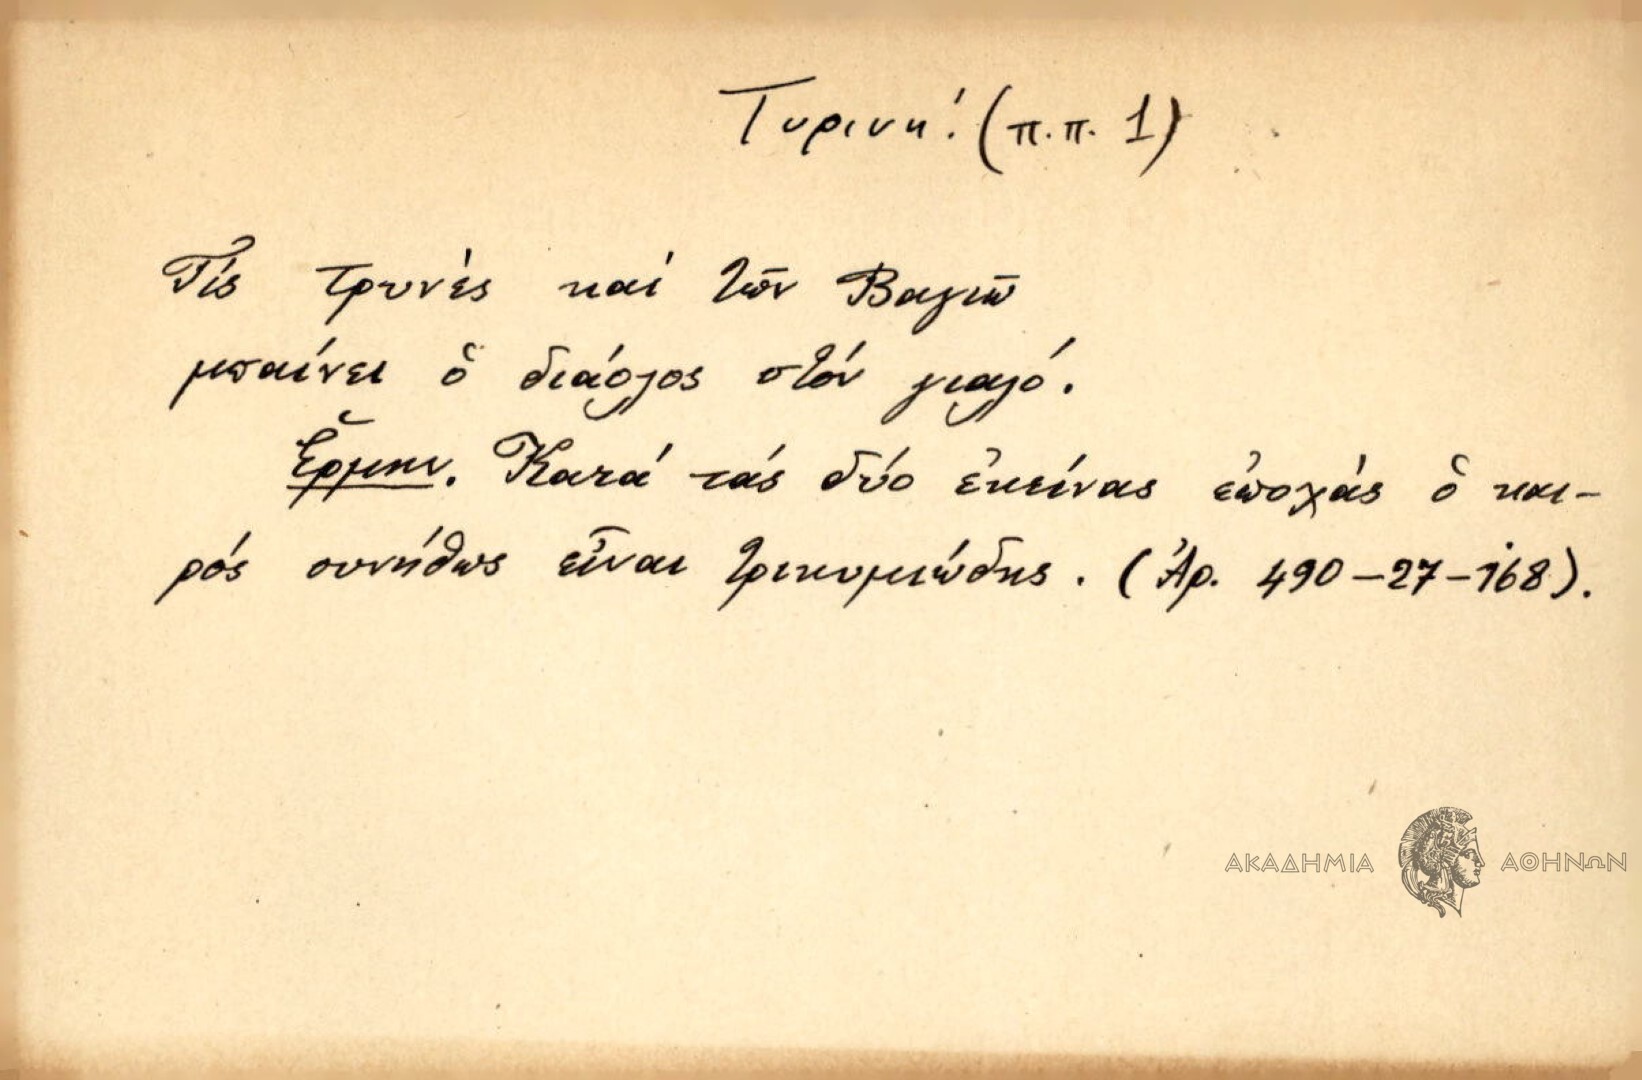 Τυρινή! (π.π. 1)
Τίς τρυνές καί τῶν Βαγιῶ
μπαίνει ὁ διάολος στόν γιαλό.
Ἑρμην. Κατά τάς δύο ἐκείνας ἐποχάς ὁ και-
ρός συνήθως εἶναι τρικυμιώδης. (Ἀρ. 490-27-168).
ΑΚΑΔΗΜΙΑ ΑΘΗΝΩΝ